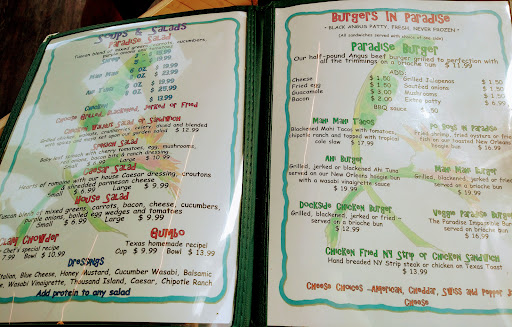 Soups & Salads
Paradise Salad
blend of mixed greens, carrots, cucumbers,
Mahi Mahi
Ahi Tuna
Chicken
Grilled, Blackened, Jerked or Fried
Chicken Walnut Salad or Sandwich
Grilled chicken, walnuts, cranberries, celery diced and blended
with spices and mayo set upon our garden salad $ 12.99
Spinach Salad
Baby leaf spinach with cherry tomatoes, egg, mushrooms,
red onions, bacon bits & ranch dressing
Small $ 6.99 Large $ 10.99
Caesar Salad
Hearts of romaine with our house Caesar dressing, croutons
& shredded parmesan cheese
Small $ 6.99 Large $ 9.99
House Salad
blend of mixed greens, carrots, bacon, cheese, cucumbers,
purple onions, boiled egg wedges and tomatoes
Small $ 6.99 Large $ 9.99
Clam Chowder
Chef's special recipe
7.99 Bowl $ 10.99
Gumbo
Texas homemade recipe!
Cup $ 9.99 Bowl $ 13.99
Dressings
Italian, Blue Cheese, Honey Mustard, Cucumber Wasabi, Balsamic
Wasabi Vinaigrette, Thousand Island, Caesar, Chipotle Ranch
Add protein to any salad
Burgers In Paradise
* BLACK ANGUS PATTY. FRESH, NEVER FROZEN *
(All sandwiches served with choice of one side)
Paradise Burger
Our half-pound Angus beef burger grilled to perfection with
all the trimmings on a brioche bun $ 11.99
ADD:
Cheese $ 1.50 Grilled Jalapenos $ 1.50
Fried egg $ 1.50 Sautéed onions $ 1.50
Guacamole $ 3.00 Mushrooms $ 1.50
Bacon $ 2.00 Extra patty $ 6.99
BBQ sauce $ 1.50
Mahi Mahi Tacos
Blackened Mahi Tacos with tomatoes,
chipotle ranch and topped with tropical
cole slaw $ 17.99
Po Boys In Paradise
Fried shrimp, fried oysters or fried
fish on our toasted New Orleans
hoagie bun $ 16.99
Ahi Burger
Grilled, jerked or blackened Ahi Tuna
served on our New Orleans hoagie bun
with a wasabi vinaigrette sauce
$ 19.99
Mahi Mahi Burger
Grilled, blackened, jerked or fried
served on a brioche bun
$ 19.99
Dockside Chicken Burger
Grilled, blackened, jerked or fried -
served on a brioche bun
$ 12.99
Veggie Paradise Burger
The Paradise Impossible Burger
served on a brioche bun
$ 16.99
Chicken Fried NY Strip or Chicken Sandwich
Hand breaded NY Strip steak or chicken on Texas Toast
$ 13.99
Cheese Choices -American, Cheddar, Swiss and Pepper
Cheese